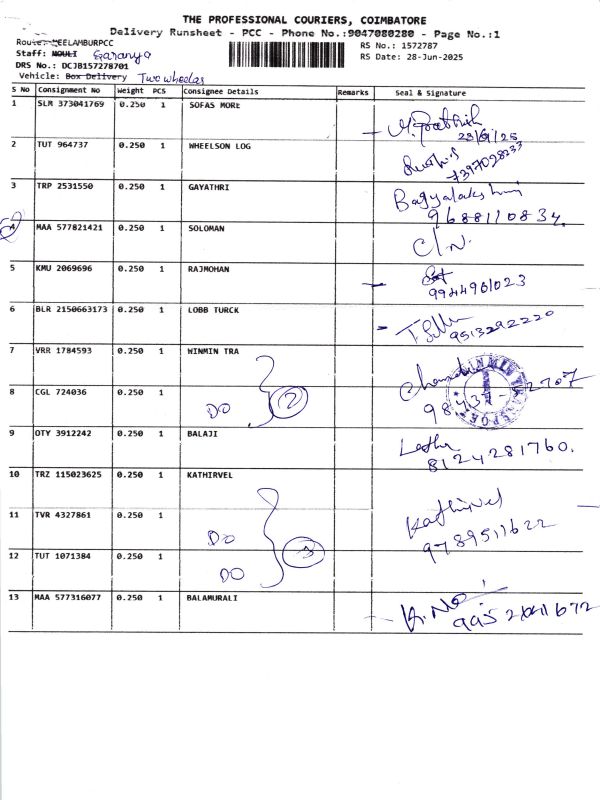 THE PROFESSIONAL COURIERS, COIMBATORE
Delivery Runsheet - PCC - Phone No.:9047080280 - Page No.:1
Route: NEELAMBURPCC
RS No.: 1572787
Staff: MOULI Saranya
RS Date: 28-Jun-2025
DRS No.: DCJB157278701
Vehicle: Box Delivery Two wheelas
S No Consignment No Weight PCS Consignee Details Remarks Seal & Signature
1 SLM 373041769 0.250 1 SOFAS MORE
2 TUT 964737 0.250 1 WHEELSON LOG
7397098233
3 TRP 2531550 0.250 1 GAYATHRI Bagyalakshmi
9688110834.
4 MAA 577821421 0.250 1 SOLOMAN C/N.
5 KMU 2069696 0.250 1 RAJMOHAN
9944961023
6 BLR 2150663173 0.250 1 LOBB TURCK
9513292220
7 VRR 1784593 0.250 1 WINMIN TRA
8 CGL 724036 0.250 1 DO 2
9 OTY 3912242 0.250 1 BALAJI Latha
8124281760.
10 TRZ 115023625 0.250 1 KATHIRVEL Kathirvel
11 TVR 4327861 0.250 1 DO 9789511622
12 TUT 1071384 0.250 1 DO 3
13 MAA 577316077 0.250 1 BALAMURALI